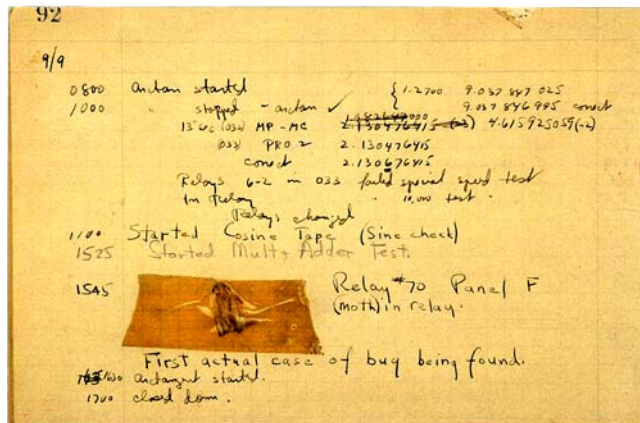 92
9/9
0800 Arctan started { 1.2700 9.037 847 025
1000 " stopped - arctan ✓ 9.037 846 995 correct
13" sec (032) MP - MC 2.130476415 (-3) 4.615925059(-2)
(033) PRO 2 2.130476415
correct 2.130676415
Relays 6-2 in 033 failed special speed test
In Relay " 10,000 test .
Relays changed
1100 Started Cosine Tape (Sine check)
1525 Started Mult + Adder Test.
1545 Relay #70 Panel F
(moth) in relay.
First actual case of bug being found.
1630 arctangent started.
1700 closed down.